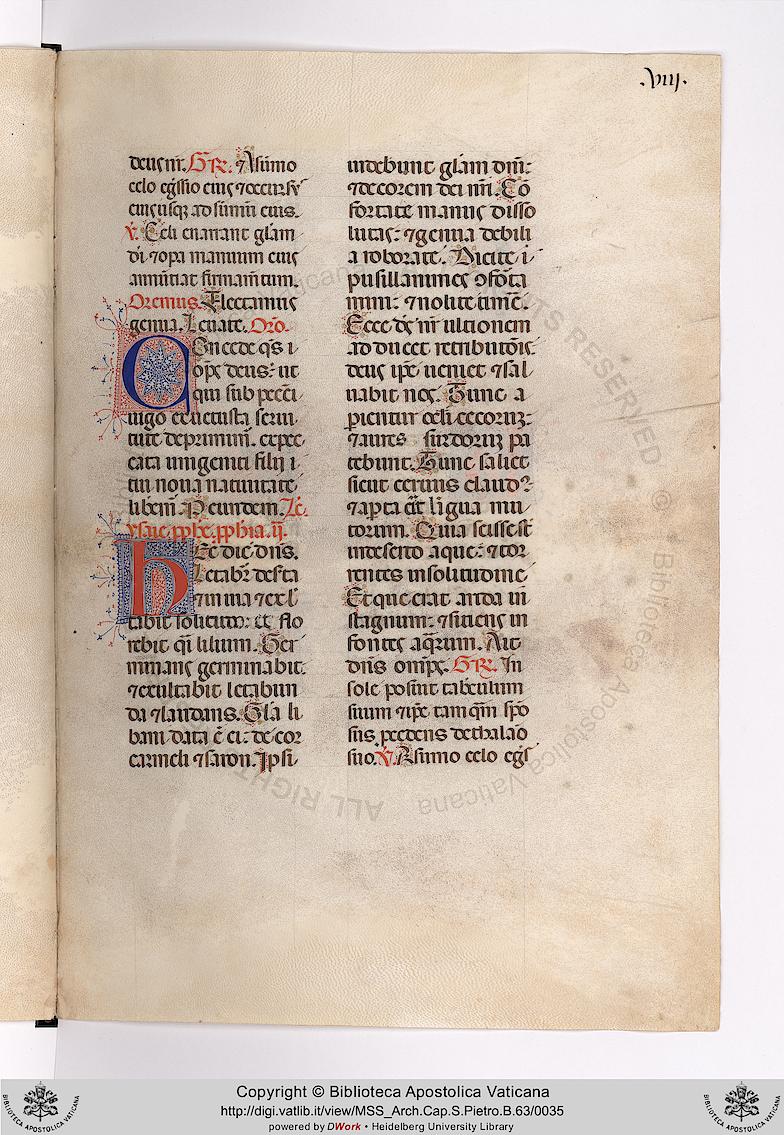 .viij.
deus nr̄. GR. A sūmo
celo eg̃ssio eius ⁊ occursꝰ
eius usq̨ ad sūmū eius.
v. Celi enarrant glam
di ⁊ opa manuum eius
annūtiat firmam̄tum.
Oremus. Flectamus
genua. Levate. Oro.
Concede q̄s i
op̄s deus: ut
qui sub pecc̄i
iugo ex vetusta servi
tute deprimim̄. expec
tata unigeniti filij t
tui nova nativitate
liberem̄. P eundem. Lc̄.
ysaie pphe. pphia. ij.
hEc dic̄ dn̄s.
Letabr̄ deserta
⁊ invia ⁊ exl̄
tabit solitudo: et flo
rebit q̄i lilium. Ger
minans germinabit:
⁊ exultabit letabun
da ⁊ laudans. Gl̄a li
bani data ē ei: decor
carmeli ⁊ saron. Ipsi
videbunt glam dn̄i:
⁊ decorem dei nr̄i. Cō
fortate manus disso
lutas: ⁊ genua debili
a roborate. Dicite
pusillanimes ꝯforta
mini: ⁊ nolite timē.
Ecce ds̄ nr̄ ultionem
adducet retributōis
deus ip̄e veniet ⁊ sal
vabit nos. Tunc a
pientur oculi cecoruꝫ:
⁊ aures surdoruꝫ pa
tebunt. Tunc saliet
sicut cervus claudꝰ
⁊ apta ēit lingua mu
torum. Quia scisse st̄
in deserto aque: ⁊ tor
rentes in solitudine
Et que erat arida in
stagnum: ⁊ sitiens in
fontes aq̄rum. Ait
dn̄s omp̄s. GR. In
sole posuit tab̄culum
suum ⁊ ip̄e tamq̄m spō
sus pcedens de thalāo
suo. V. A sūmo celo eg̃s
Copyright © Biblioteca Apostolica Vaticana
http://digi.vatlib.it/view/MSS_Arch.Cap.S.Pietro.B.63/0035
powered by DWork • Heidelberg University Library
BIBLIOTECA APOSTOLICA VATICANA
BIBLIOTECA APOSTOLICA VATICANA
ALL RIGHTS RESERVED © Biblioteca Apostolica Vaticana